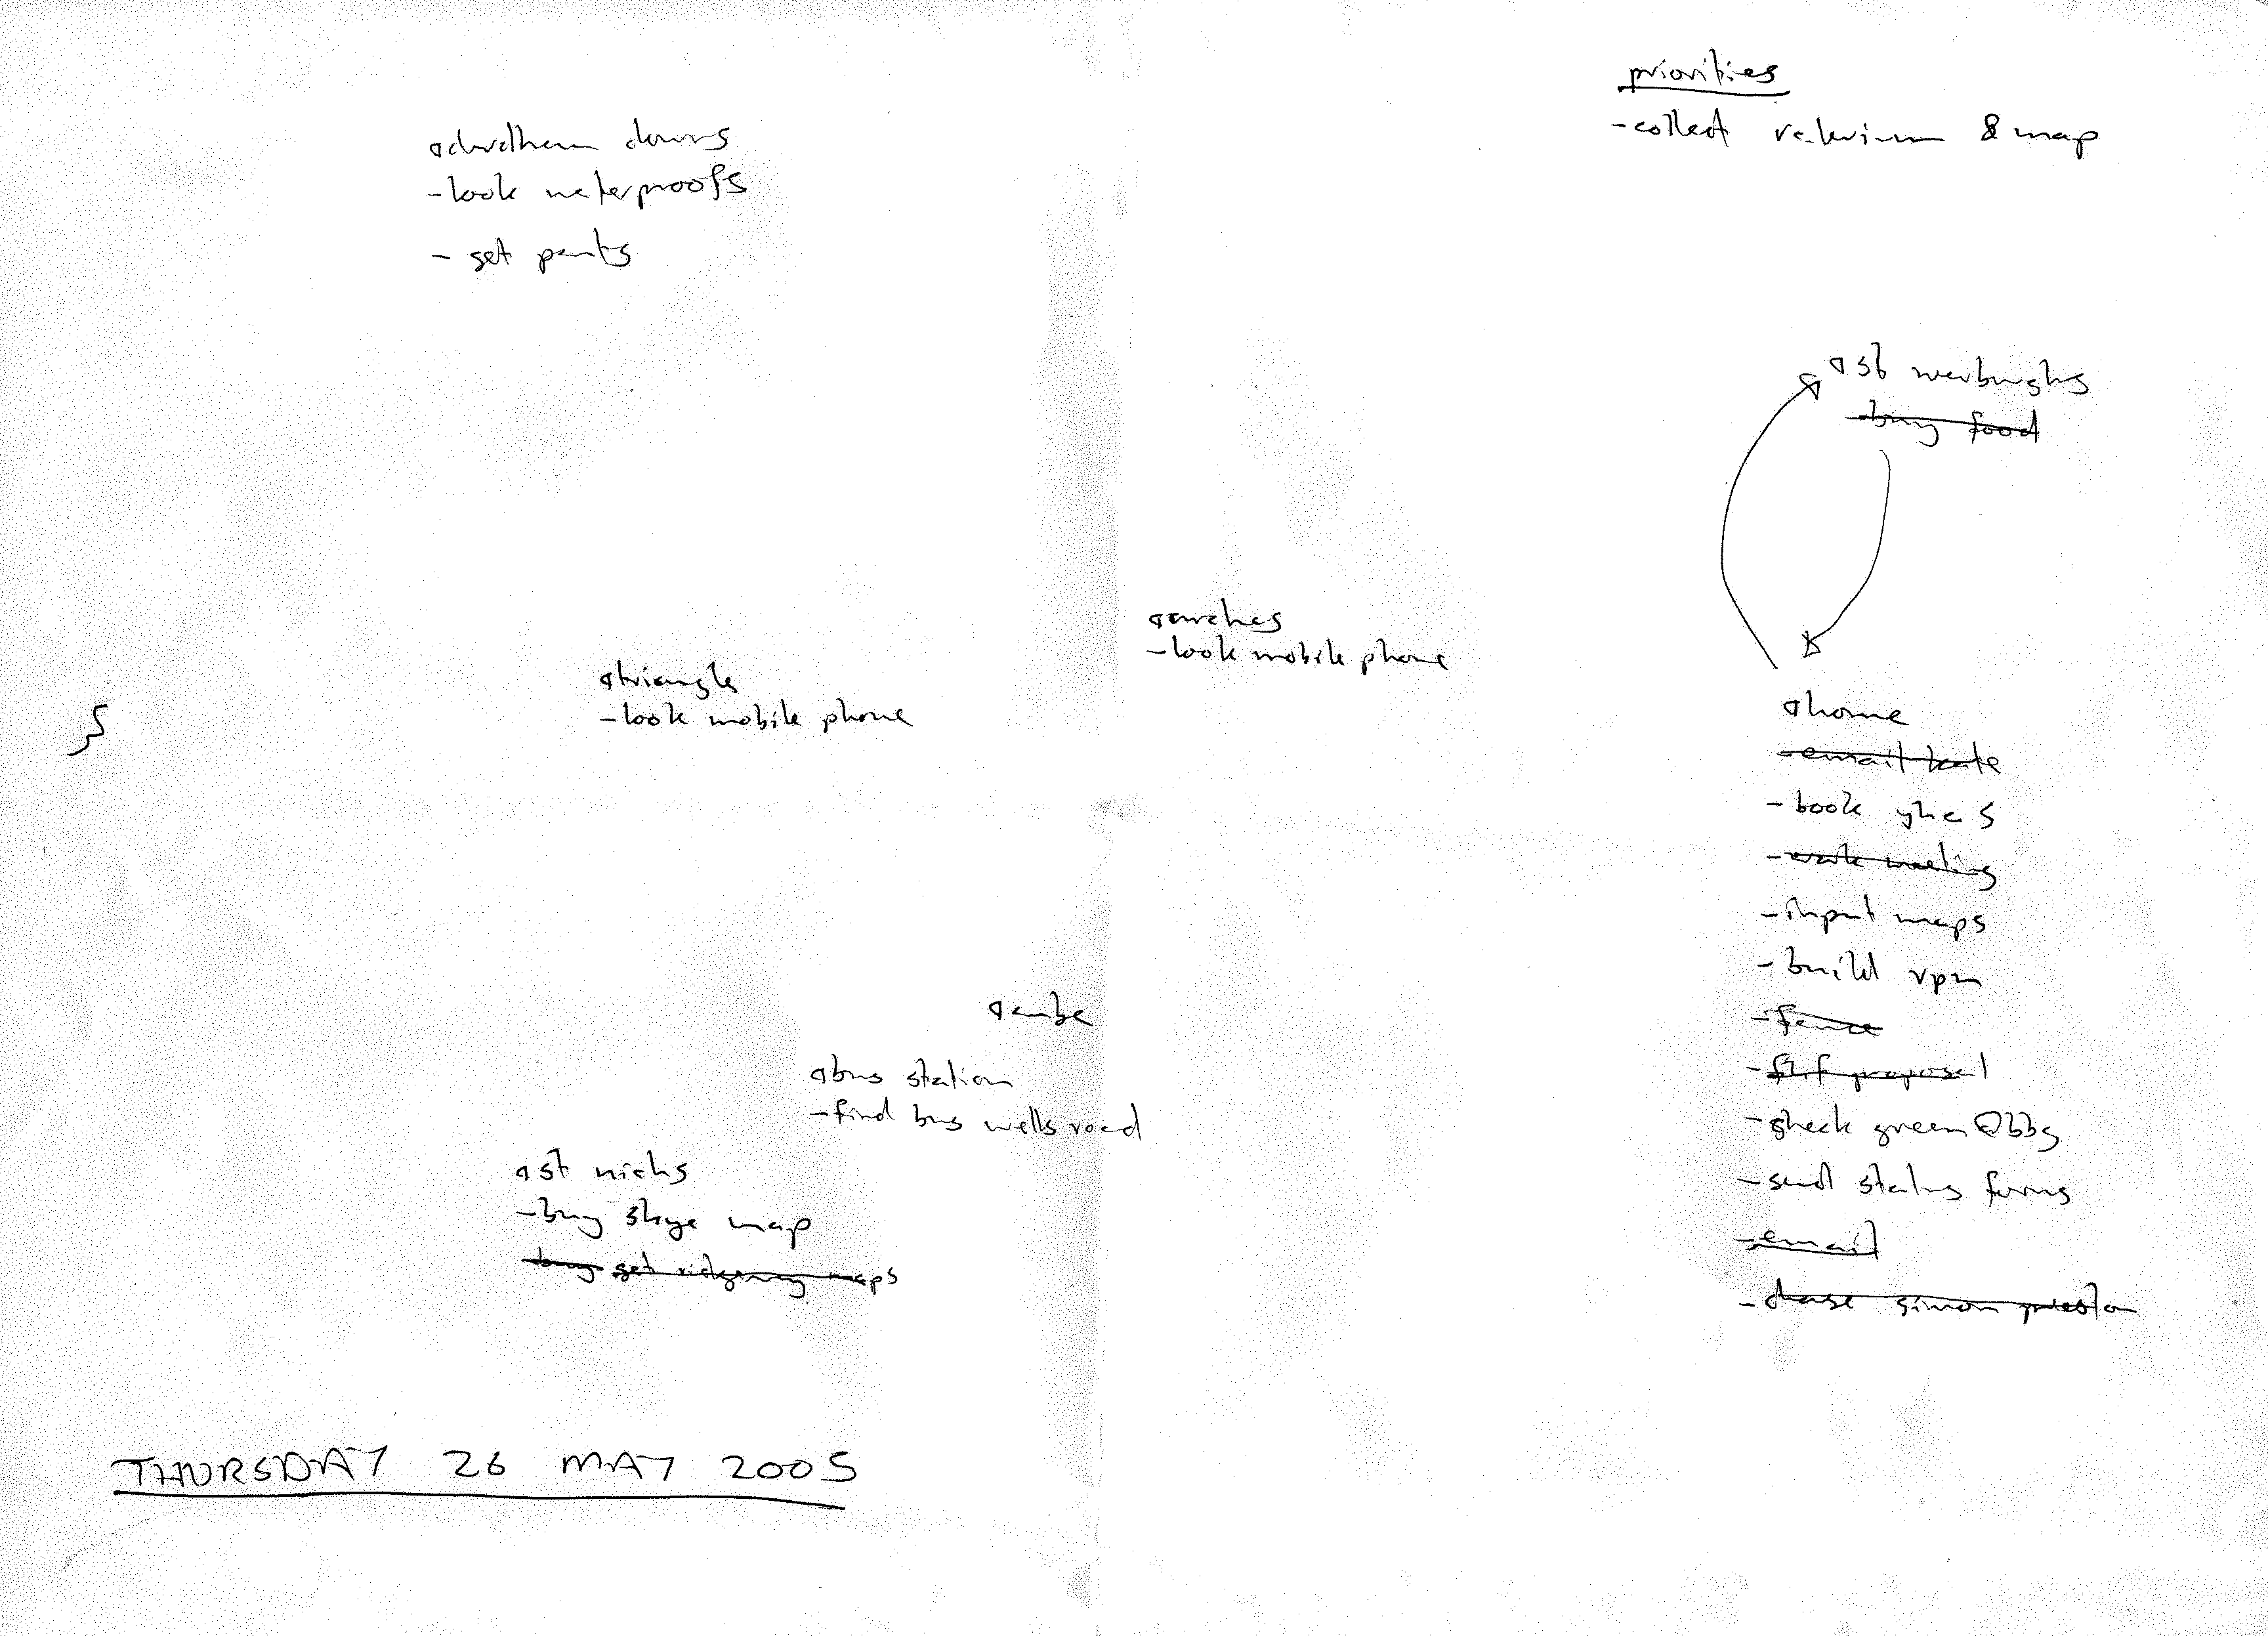 priorities
-collect valerian & map
durdham downs
-look waterproofs
- get pants
st werburghs
-buy food
arches
-look mobile phone
triangle
-look mobile phone
home
-email kate
-book yha s
-work meeting
-input maps
-build vpn
-fence
proposal
-check green
-send status forms
-email
-chase simon preston
cube
bus station
-find bus wells road
st nicks
-buy skye map
-buy get ridgeway maps
THURSDAY 26 MAY 2005